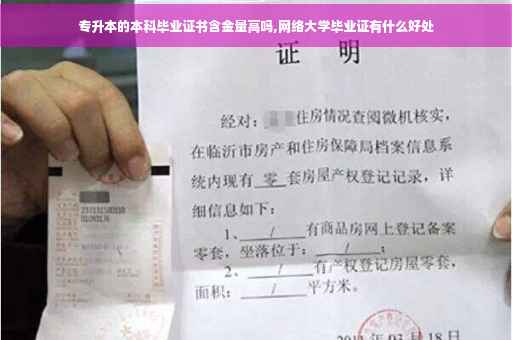 专升本的本科毕业证书含金量高吗,网络大学毕业证有什么好处
证 明
经对: 住房情况查阅微机核实,
在临沂市房产和住房保障局档案信息系
统内现有 零 套房屋产权登记记录,详
细信息如下:
1、 / 有商品房网上登记备案
零套,坐落位于: / ;
2、 / 有产权登记房屋零套,
面积: / 平方米。
月 18 日